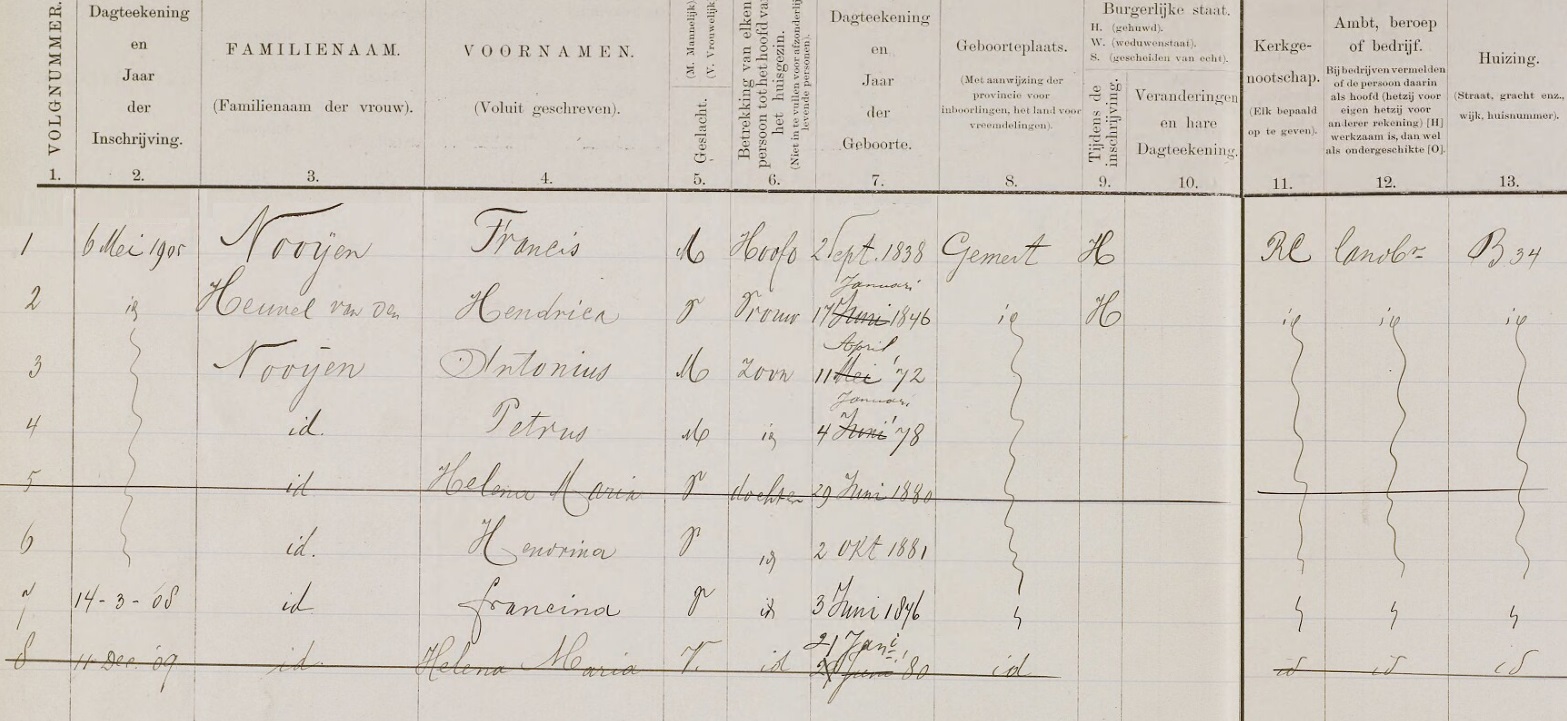 VOLGNUMMER. Dagteekening en Jaar der Inschrijving. FAMILIENAAM. (Familienaam der vrouw). VOORNAMEN. (Voluit geschreven). Geslacht. (M. Mannelijk) (V. Vrouwelijk) Betrekking van elken persoon tot het hoofd van het huisgezin. (Niet in te vullen voor afzonderlijk levende personen). Dagteekening en Jaar der Geboorte. Geboorteplaats. (Met aanwijzing der provincie voor inboorlingen, het land voor vreemdelingen). Burgerlijke staat. H. (gehuwd). W. (weduwenstaat). S. (gescheiden van echt). Tijdens de inschrijving. Veranderingen en hare Dagteekening. Kerkge-nootschap. (Elk bepaald op te geven). Ambt, beroep of bedrijf. Bij bedrijven vermelden of de persoon daarin als hoofd (hetzij voor eigen hetzij voor anderer rekening) [H] werkzaam is, dan wel als ondergeschikte [O]. Huizing. (Straat, gracht enz., wijk, huisnummer).
1. 2. 3. 4. 5. 6. 7. 8. 9. 10. 11. 12. 13.
1 6 Mei 1905 Nooijen Francis M Hoofd 2 Sept. 1838 Gemert H RC landbr B 34
Januari
2 id Heuvel van den Hendrica V Vrouw 17 Juni 1846 id H id id id
April
3 Nooijen Antonius M Zoon 11 Mei '72
Januari
4 id. Petrus M id 4 Juni '78
5 id Helena Maria V dochter 29 Juni 1880
6 id. Hendrina V id 2 Okt 1881
7 14-3-08 id francina V id 3 Juni 1876
21 Jani
8 11 Dec. '09 id Helena Maria V. id 29 Juni '80 id id id id